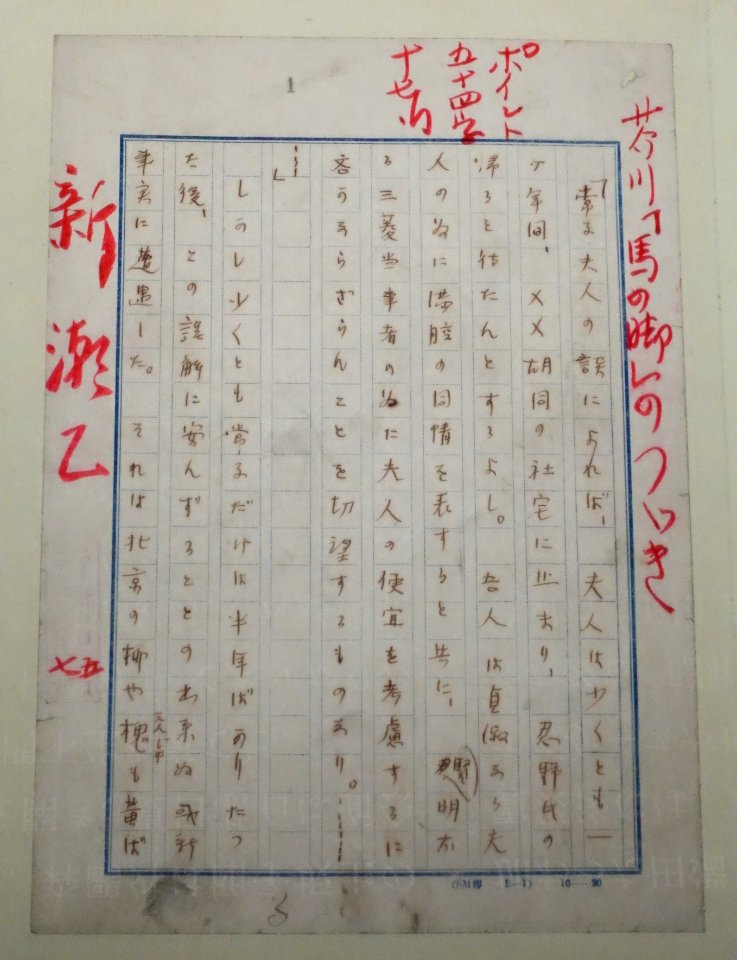 1
芥川「馬の脚」のつゞき
ポイント
五十四字
十七行
「常子夫人の談によれば、夫人は少くとも一
ケ年間、××胡同の社宅に止まり、忍野氏の
帰るを待たんとするよし。吾人は貞淑なる夫
人の為に満腔の同情を表すると共に、賢明な
る三菱当事者の為に夫人の便宜を考慮するに
吝かならざらんことを切望するものなり。……
……」
しかし少くとも常子だけは半年ばかりたつ
た後、この誤解に安んずることの出来ぬ或新
事実に遭遇した。それは北京の柳や槐も黄ば
ゑんじゆ
新潮乙
七五
10……20